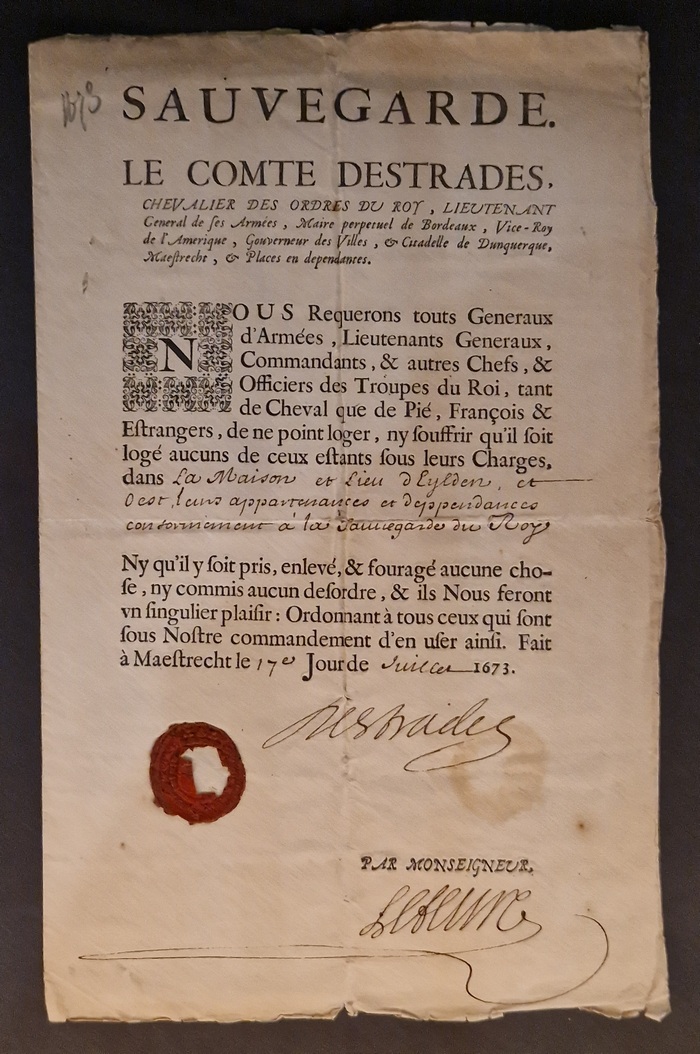 1673
SAUVEGARDE.
LE COMTE DESTRADES,
CHEVALIER DES ORDRES DU ROY, LIEUTENANT
General de ſes Armées, Maire perpetuel de Bordeaux, Vice-Roy
de l'Amerique, Gouverneur des Villes, & Citadelle de Dunquerque,
Maeſtrecht, & Places en dependantes.
NOUS Requerons touts Generaux
d'Armées, Lieutenants Generaux,
Commandants, & autres Chefs, &
Officiers des Troupes du Roi, tant
de Cheval que de Pié, François &
Eſtrangers, de ne point loger, ny ſouffrir qu'il ſoit
logé aucuns de ceux eſtants ſous leurs Charges,
dans La Maison et Lieu d'Eylden, et
Oest, leurs appartenances et deppendances
conformement à la Sauvegarde du Roy
Ny qu'il y ſoit pris, enlevé, & fouragé aucune cho-
ſe, ny commis aucun deſordre, & ils Nous feront
vn ſingulier plaiſir: Ordonnant à tous ceux qui ſont
ſous Noſtre commandement d'en uſer ainſi. Fait
à Maeſtrecht le 17e Jour de Juillet 1673.
Destrades
PAR MONSEIGNEUR,